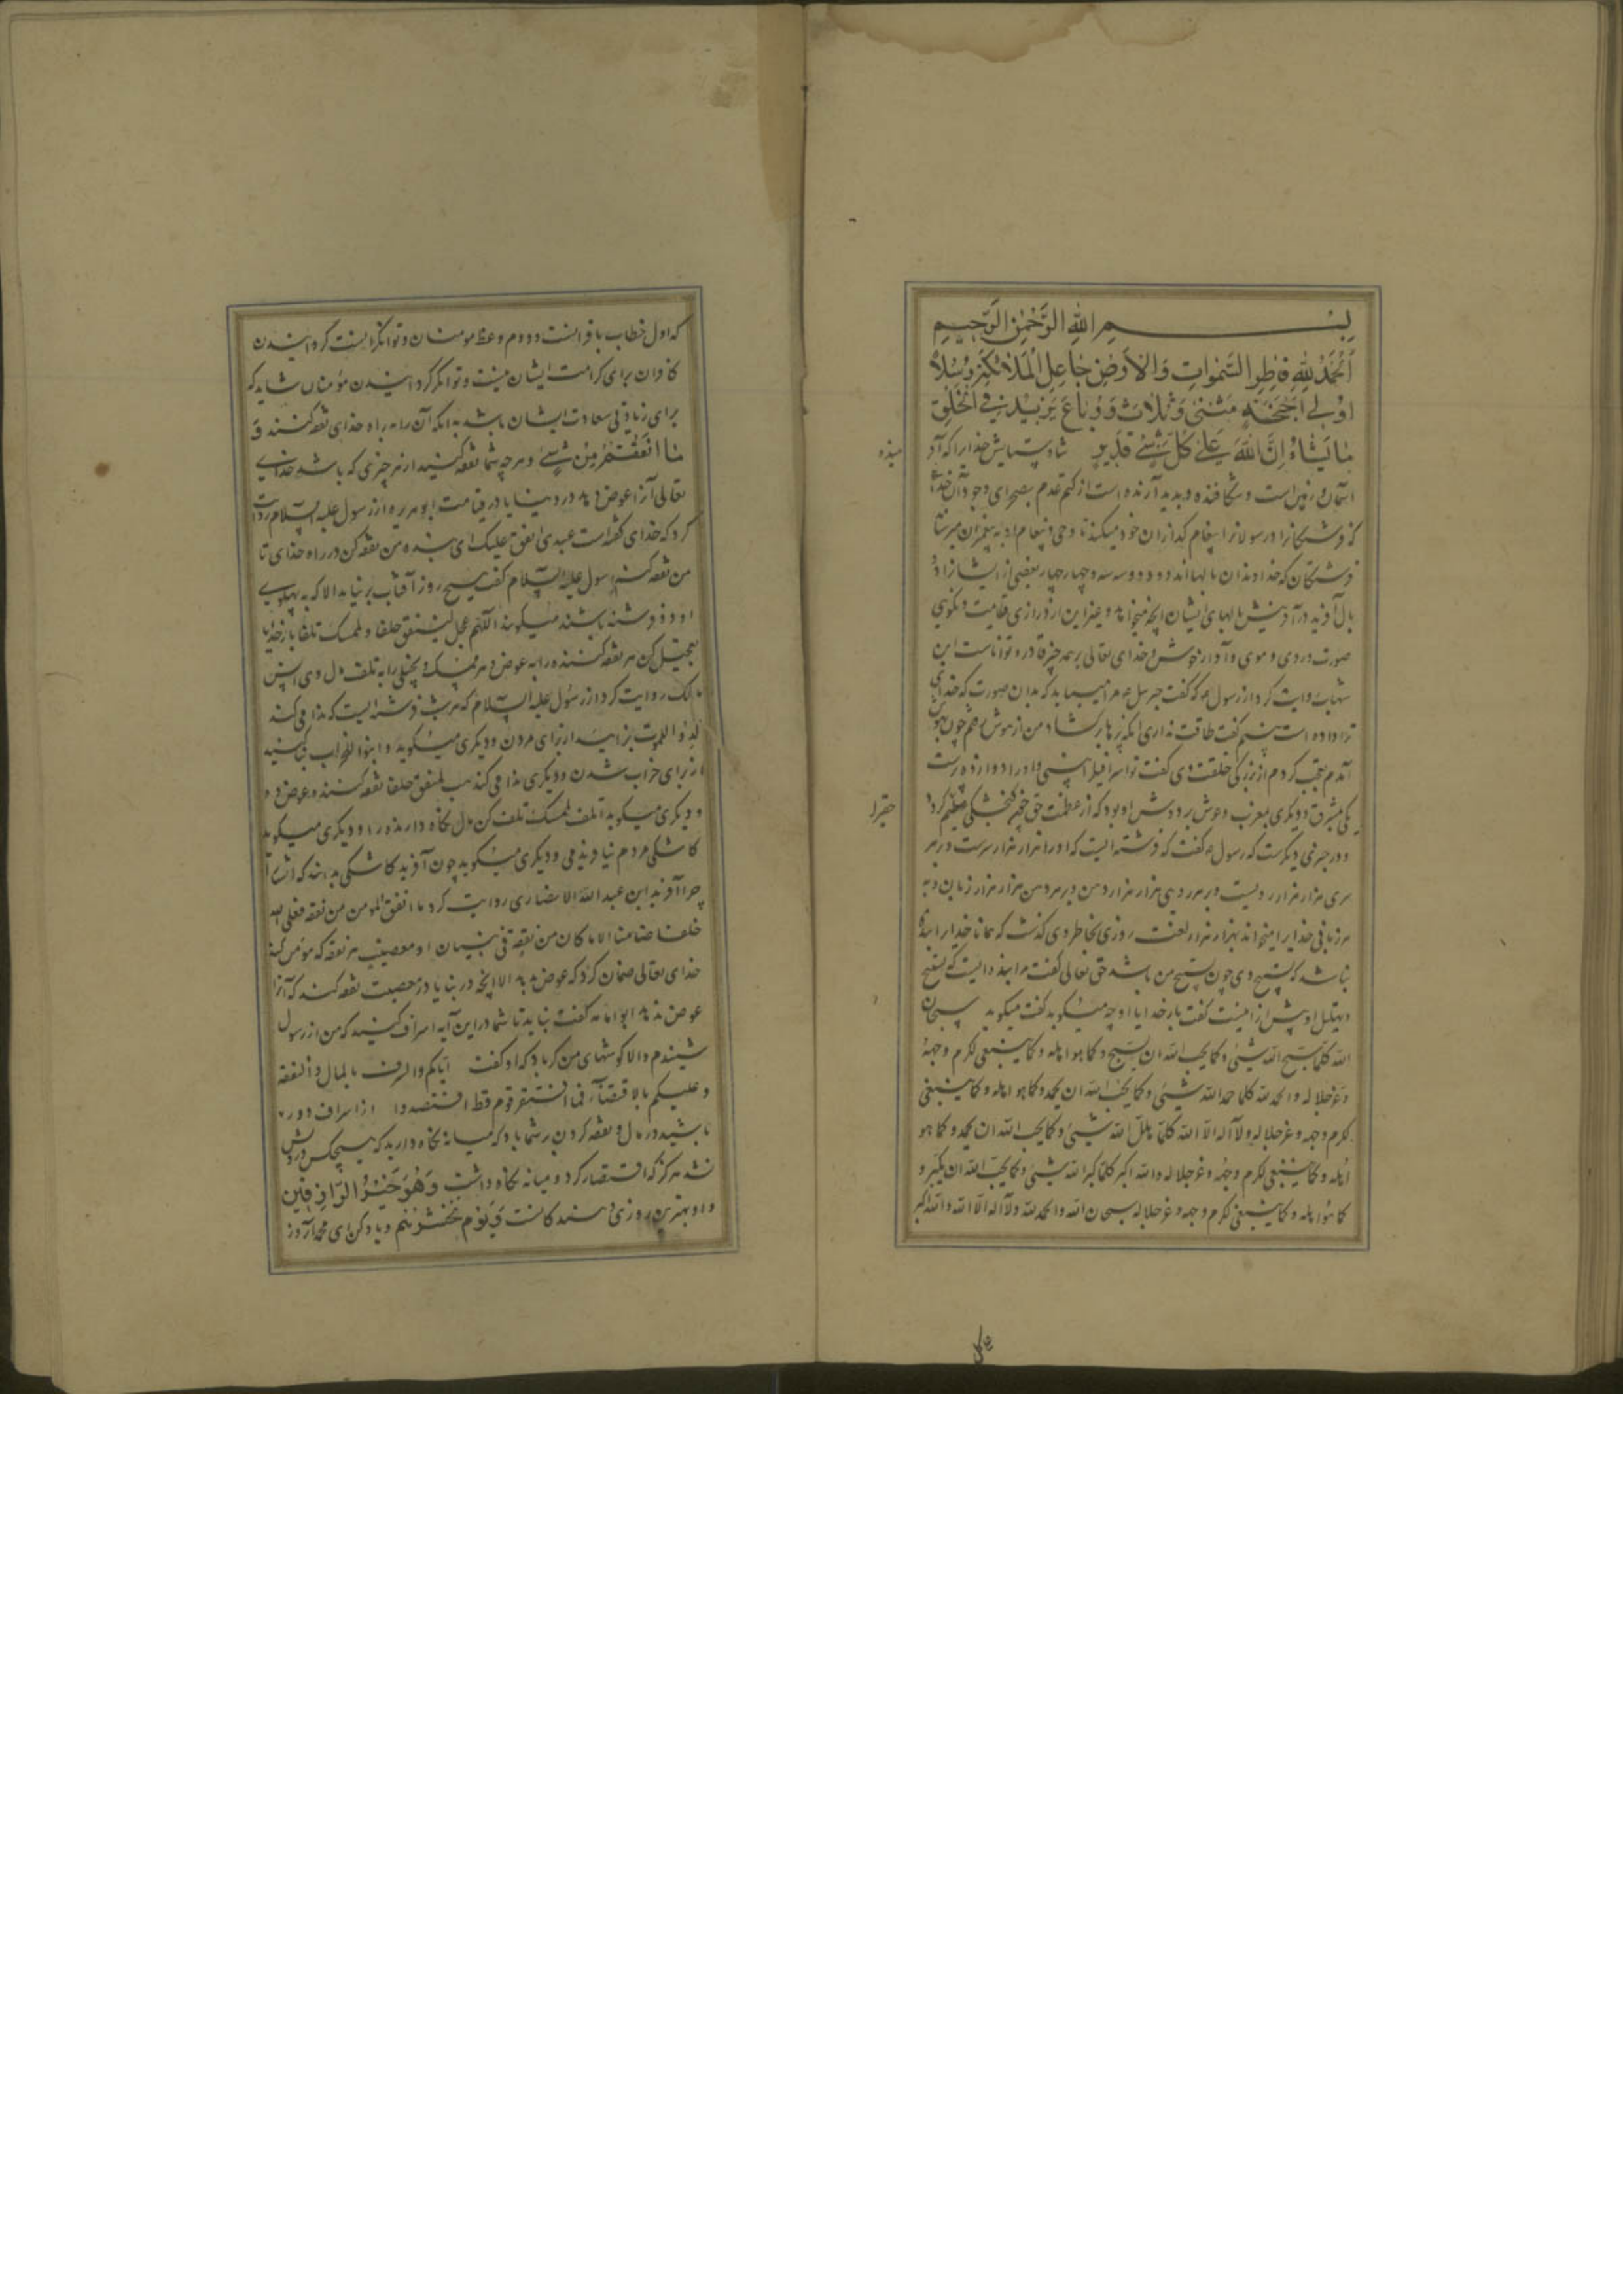 بسم الله الرحمن الرحیم
الحمد لله فاطر السموات والارض جاعل الملائکة رسلا
اولی اجنحة مثنی وثلاث ورباع یزید فی الخلق
ما یشاء ان الله علی کل شیء قدیر
آسمان و زمین است و شکافنده و پدید آرنده است از کتم عدم بصحرای وجود آن خدا
که فرشتکانرا و رسولانرا پیغام کذاران خود میکند تا وحی و پیغام او به پیغمبران
فرشتکان که خداوندان بالها اند دو دو و سه سه و چهار چهار بعضی از ایشانرا دو
بال آفرید در آفرینش بالهای ایشان آنچه میخواهد و غیر این از درازی قامت و نکویی
صورت و روی و موی و آواز خوش و خدای تعالی بر همه چیز قادر و تواناست ابن
شهاب روایت کرد از رسول که گفت جبرئیل بدان صورت که خدای
ترا داده است ببینم گفت طاقت نداری
یکی بمشرق و دیکری بمغرب و عرش بر دوش او بود که از عظمت حق
و در خبری دیکرست که رسول گفت که فرشته ایست که او را هزار هزار سرست و در هر
سری هزار هزار رویست و در هر روی هزار هزار دهن و در هر دهن هزار هزار زبان و به
هر زبانی خدایرا میخواند بهزار هزار لغت روزی بخاطر وی گذشت که همانا خدایرا بنده
نباشد که تسبیح وی چون تسبیح من باشد حق تعالی گفت مرا بنده ایست که تسبیح
و تهلیل او بیش از آنست گفت بار خدایا او چه میکوید گفت میکوید سبحان
الله کلما سبح الله شیء وکما یحب الله ان یسبح وکما هو اهله وکما ینبغی لکرم وجهه
وعز جلاله والحمد لله کلما حمد الله شیء وکما یحب الله ان یحمد وکما هو اهله وکما ینبغی
لکرم وجهه وعز جلاله ولا اله الا الله کلما هلل الله شیء وکما یحب الله ان یحمد وکما هو
اهله وکما ینبغی لکرم وجهه وعز جلاله والله اکبر کلما کبر الله شیء وکما یحب الله ان یکبر و
کما هو اهله وکما ینبغی لکرم وجهه وعز جلاله سبحان الله والحمد لله ولا اله الا الله والله اکبر
که اول خطاب با
کافران برای کرامت ایشان نیست و توانکر کردانیدن مؤمنان شاید که
برای زیادتی سعادت ایشان باشد بدانکه آن را به راه خدای نفقه کنند و
ما انفقتم من شیء و هر چه شما نفقه کنید از هر چیزی که باشد خدای
تعالی آنرا عوض دهد در دنیا یا در قیامت ابو هریره از رسول علیه السلام روایت
کرد که خدای گفته است عبدی انفق علیک ای بنده من نفقه کن در راه خدای تا
من نفقه کنم رسول علیه السلام گفت هیچ روز آفتاب بر نیاید الا که به پهلوی
او دو فرشته باشند میکویند اللهم عجل لمنفق خلفا ولممسک تلفا بار خدایا
تعجیل کن هر نفقه کننده را به عوض و هر ممسک و بخیلی را به تلف مال وی انس
مالک روایت کرد از رسول علیه السلام که هر شب فرشته ایست که ندا می کند
لدوا للموت بزایید از برای مردن و دیکری میکوید وابنوا للخراب بنا کنید
از برای خراب شدن و دیکری ندا می کند هب للمنفق خلفا نفقه کننده را عوض ده
و دیکری میکوید اتلف لممسک تلف کن مال نکاه دارنده را و دیکری میکوید
کاشکی مردم نیافریدندی و دیکری میکوید چون آفریدند کاشکی بدانند که ایشانرا
چرا آفریدند ابن عبد الله الانصاری روایت کرد ما انفق المؤمن من نفقة فعلی الله
خلفها ضامنا الا ما کان من نفقة فی بنیان او معصیة هر نفقه که مؤمن کند
خدای تعالی ضمان کرد که عوض بدهد الا آنچه در بنا یا در معصیت نفقه کند که آنرا
عوض ندهد ابو امامه گفت نباید تا شما در این آیه اسراف کنید که من از رسول
شنیدم والا کوشهای من کر باد که او گفت ایاکم والسرف بالمال والنفقة
وعلیکم بالاقتصاد فما افتقر قوم قط اقتصدوا از اسراف دور
باشید در مال و نفقه کردن بر شما باد که میانه نکاه دارید که هیچکس درویش
نشد هرکز که اقتصار کرد و میانه نکاه داشت وهو خیر الرازقین
و او بهترین روزی دهندکانست ویوم نحشرهم و یاد کن ای محمد آنروز